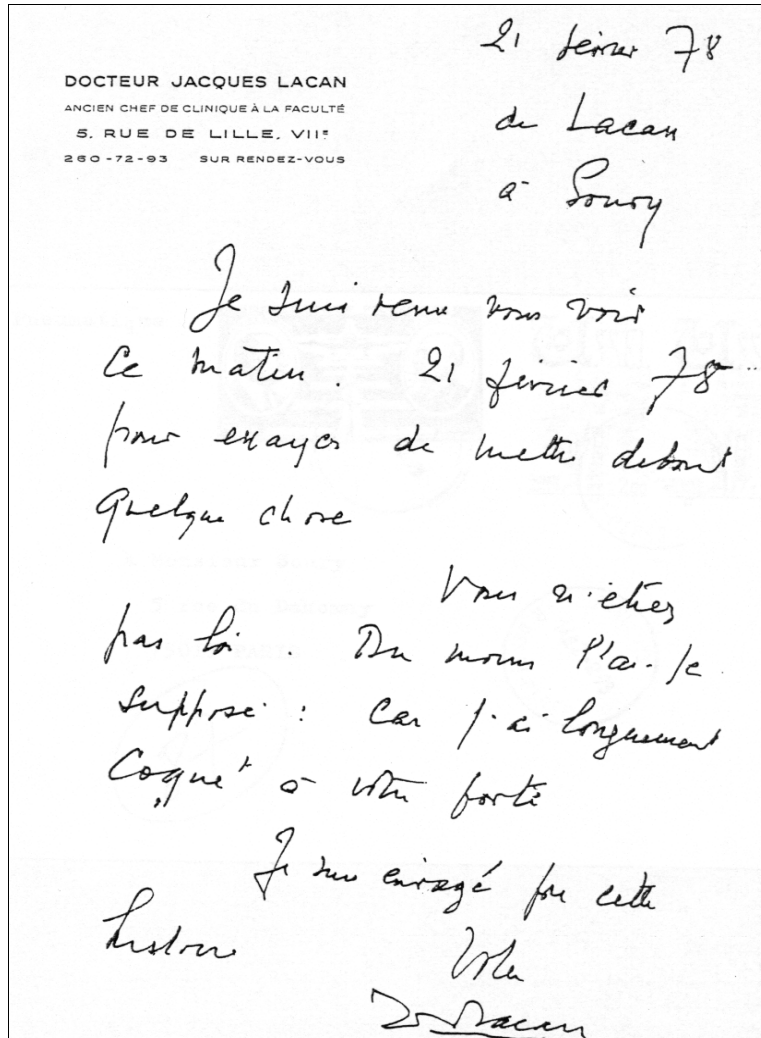 21 février 78
DOCTEUR JACQUES LACAN
ANCIEN CHEF DE CLINIQUE À LA FACULTÉ
5, RUE DE LILLE, VIIE
260-72-93 SUR RENDEZ-VOUS
de Lacan
à Soury
Je suis venu vous voir
ce matin. 21 février 78
pour essayer de mettre debout
quelque chose
Vous n'étiez
pas là. Du moins l'ai-je
supposé : car j'ai longuement
toqué à votre porte
Je suis enragé par cette
histoire
Votre
J. Lacan